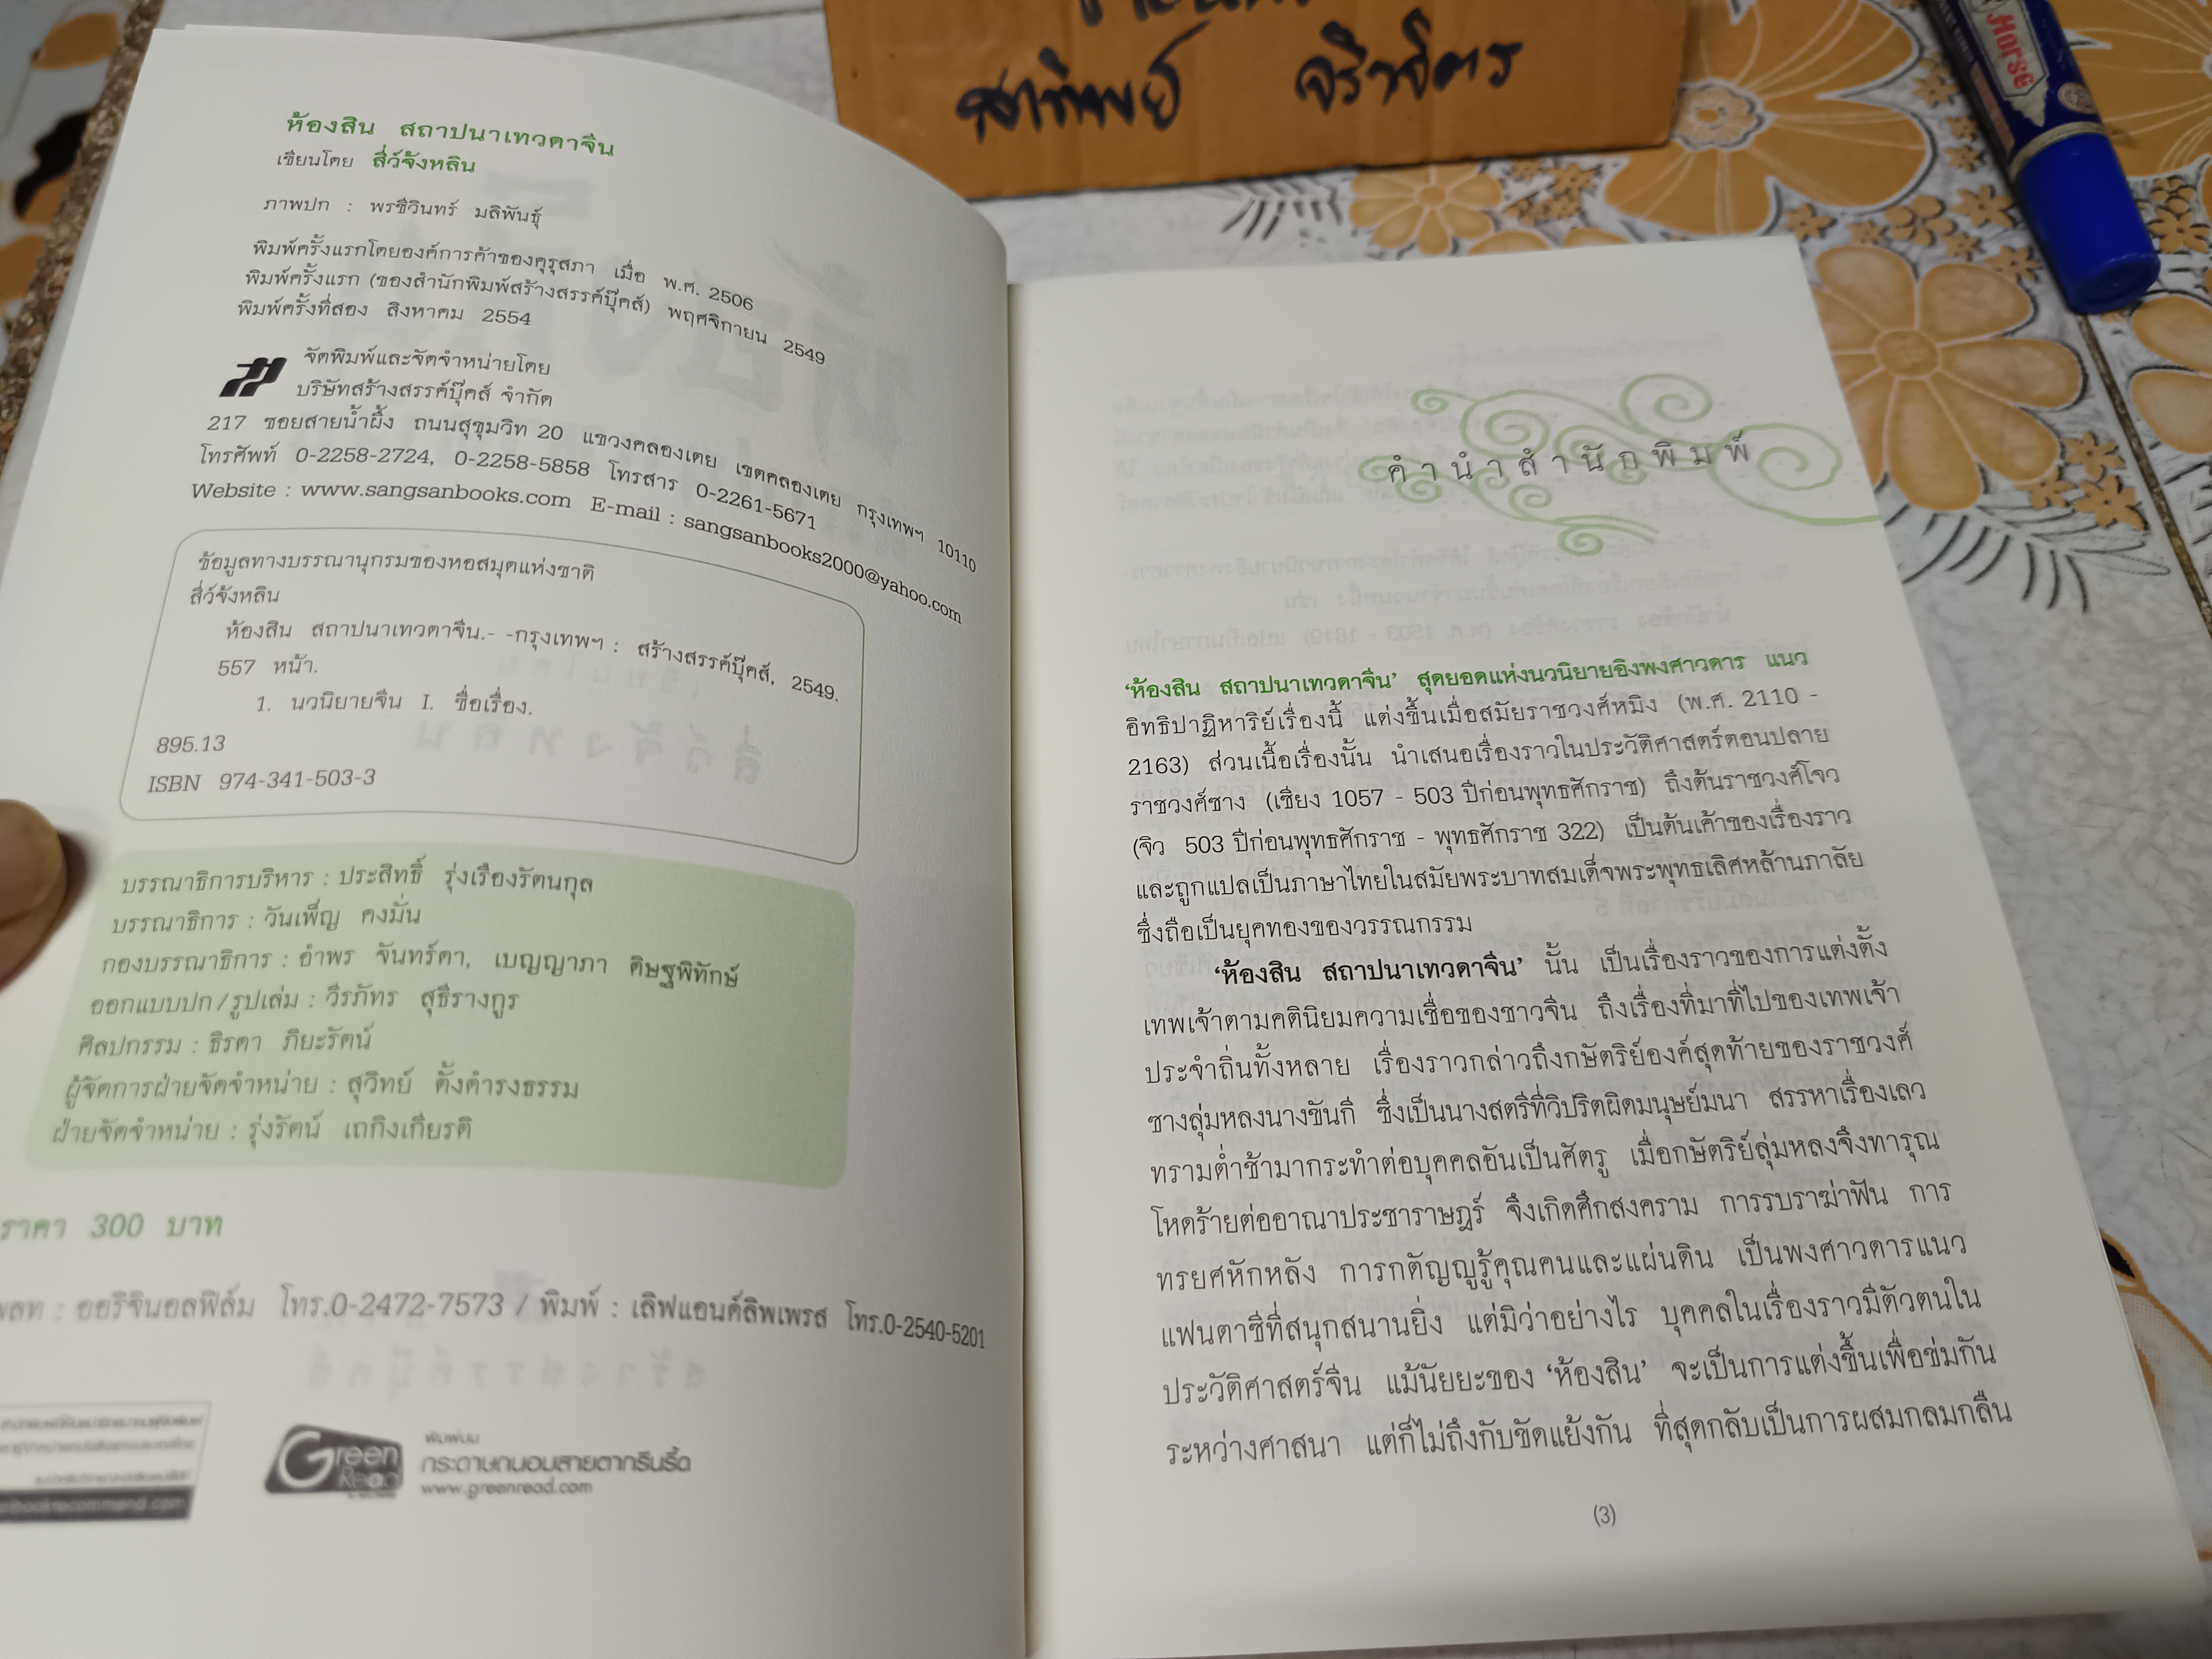 ห้องสิน สถาปนาเทวดาจีน
เขียนโดย สี่ว์จ้งหลิน
ภาพปก : พรชีวินทร์ มลิพันธุ์
พิมพ์ครั้งแรกโดยองค์การค้าของคุรุสภา เมื่อ พ.ศ. 2506
พิมพ์ครั้งแรก (ของสำนักพิมพ์สร้างสรรค์บุ๊คส์) พฤศจิกายน 2549
พิมพ์ครั้งที่สอง สิงหาคม 2554
จัดพิมพ์และจัดจำหน่ายโดย
บริษัทสร้างสรรค์บุ๊คส์ จำกัด
217 ซอยสายน้ำผึ้ง ถนนสุขุมวิท 20 แขวงคลองเตย เขตคลองเตย กรุงเทพฯ 10110
โทรศัพท์ 0-2258-2724, 0-2258-5858 โทรสาร 0-2261-5671
Website : www.sangsanbooks.com E-mail : sangsanbooks2000@yahoo.com
ข้อมูลทางบรรณานุกรมของหอสมุดแห่งชาติ
สี่ว์จ้งหลิน
ห้องสิน สถาปนาเทวดาจีน.- -กรุงเทพฯ : สร้างสรรค์บุ๊คส์, 2549.
557 หน้า.
1. นวนิยายจีน I. ชื่อเรื่อง.
895.13
ISBN 974-341-503-3
บรรณาธิการบริหาร : ประสิทธิ์ รุ่งเรืองรัตนกุล
บรรณาธิการ : วันเพ็ญ คงมั่น
กองบรรณาธิการ : อำพร จันทร์ดา, เบญญาภา ดิษฐพิทักษ์
ออกแบบปก/รูปเล่ม : วีรภัทร สุธีรางกูร
ศิลปกรรม : ธิรดา ภิยะรัตน์
ผู้จัดการฝ่ายจัดจำหน่าย : สุวิทย์ ตั้งดำรงธรรม
ฝ่ายจัดจำหน่าย : รุ่งรัตน์ เถกิงเกียรติ
ราคา 300 บาท
เพลท : ออริจินอลฟิล์ม โทร.0-2472-7573 / พิมพ์ : เลิฟแอนด์ลิพเพรส โทร.0-2540-5201
Green Read
พิมพ์บน
กระดาษถนอมสายตากรีนรี้ด
www.greenread.com
Horse
คำนำสำนักพิมพ์
‘ห้องสิน สถาปนาเทวดาจีน’ สุดยอดแห่งนวนิยายอิงพงศาวดาร แนว
อิทธิปาฏิหาริย์เรื่องนี้ แต่งขึ้นเมื่อสมัยราชวงศ์หมิง (พ.ศ. 2110 -
2163) ส่วนเนื้อเรื่องนั้น นำเสนอเรื่องราวในประวัติศาสตร์ตอนปลาย
ราชวงศ์ซาง (เซียง 1057 - 503 ปีก่อนพุทธศักราช) ถึงต้นราชวงศ์โจว
(จิว 503 ปีก่อนพุทธศักราช - พุทธศักราช 322) เป็นต้นเค้าของเรื่องราว
และถูกแปลเป็นภาษาไทยในสมัยพระบาทสมเด็จพระพุทธเลิศหล้านภาลัย
ซึ่งถือเป็นยุคทองของวรรณกรรม
‘ห้องสิน สถาปนาเทวดาจีน’ นั้น เป็นเรื่องราวของการแต่งตั้ง
เทพเจ้าตามคตินิยมความเชื่อของชาวจีน ถึงเรื่องที่มาที่ไปของเทพเจ้า
ประจำถิ่นทั้งหลาย เรื่องราวกล่าวถึงกษัตริย์องค์สุดท้ายของราชวงศ์
ซางลุ่มหลงนางขันกี ซึ่งเป็นนางสตรีที่วิปริตผิดมนุษย์มนา สรรหาเรื่องเลว
ทรามต่ำช้ามากระทำต่อบุคคลอันเป็นศัตรู เมื่อกษัตริย์ลุ่มหลงจึงทารุณ
โหดร้ายต่ออาณาประชาราษฎร์ จึงเกิดศึกสงคราม การรบราฆ่าฟัน การ
ทรยศหักหลัง การกตัญญูรู้คุณคนและแผ่นดิน เป็นพงศาวดารแนว
แฟนตาซีที่สนุกสนานยิ่ง แต่มิว่าอย่างไร บุคคลในเรื่องราวมีตัวตนใน
ประวัติศาสตร์จีน แม้นัยยะของ ‘ห้องสิน’ จะเป็นการแต่งขึ้นเพื่อข่มกัน
ระหว่างศาสนา แต่ก็ไม่ถึงกับขัดแย้งกัน ที่สุดกลับเป็นการผสมกลมกลืน
(3)